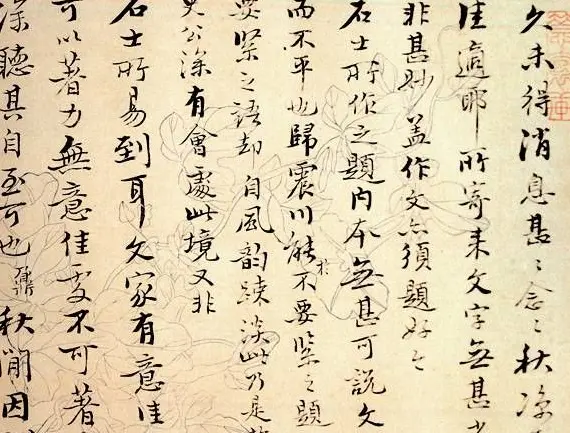 久未得消息甚〻念〻秋涼
佳適耶所寄来文字無甚
非甚妙盖作文亦須題好今
石士所作之題内本無甚可說文
而不平也歸震川能於不要緊之題
要緊之語却自風韵疎淡此乃是
公深有會處此境又非
石士所易到耳文家有意佳
可以著力無意佳處不可著
深聽其自至可也鼐秋間因